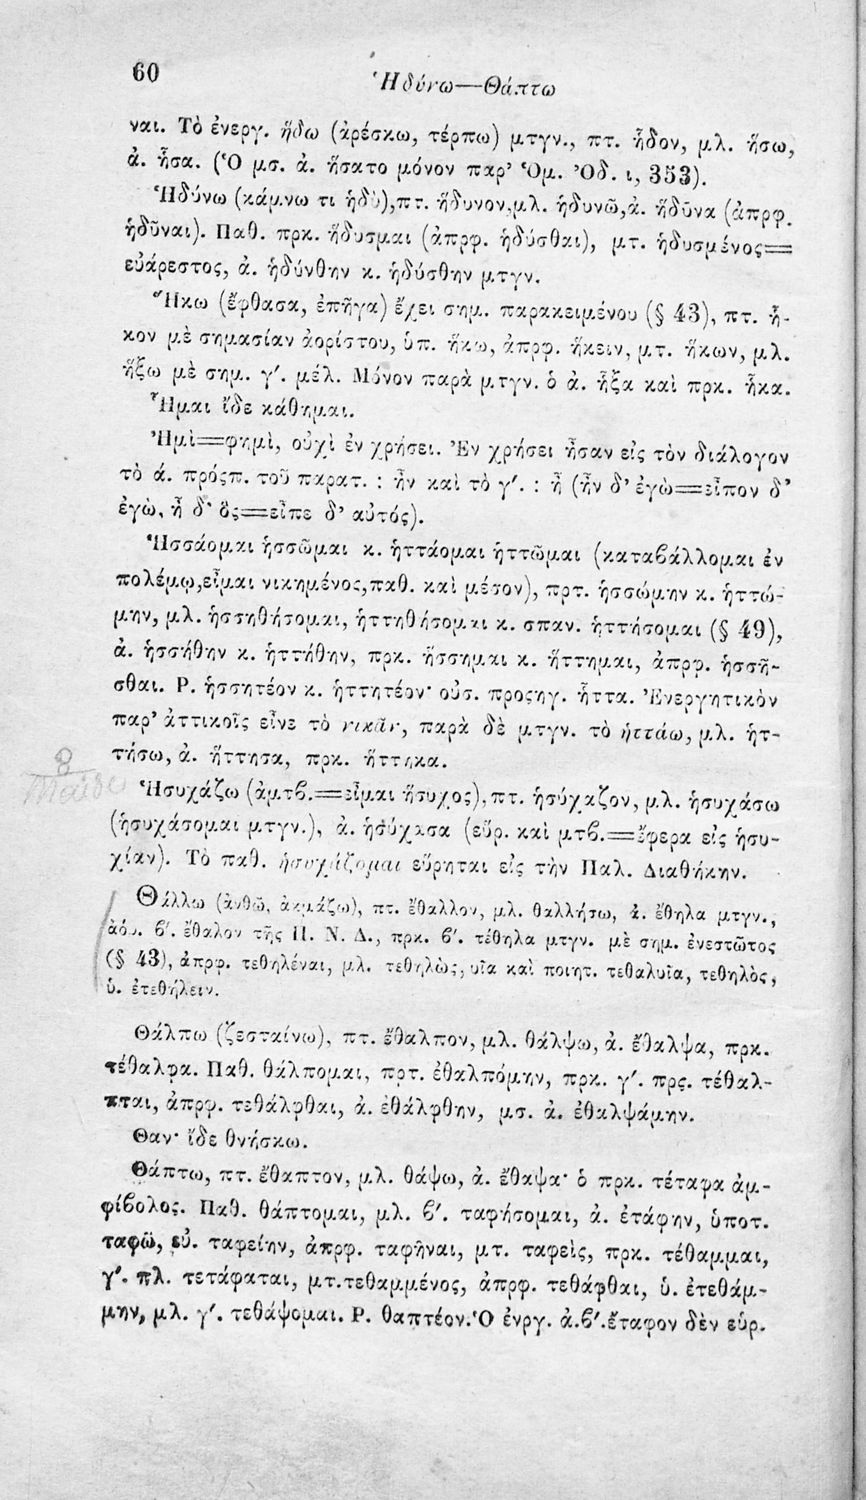 60
Ἡδύνω—Θάπτω
ναι. Τὸ ἐνεργ. ἥδω (ἀρέσκω, τέρπω) μτγν., πτ. ἧδον, μλ. ἥσω,
ἀ. ἧσα. (Ὁ μσ. ἀ. ἥσατο μόνον παρ' Ὁμ. Ὀδ. ι, 353).
Ἡδύνω (κάμνω τι ἡδὺ),πτ. ἥδυνον,μλ. ἡδυνῶ,ἀ. ἥδῦνα (ἀπρφ.
ἡδῦναι). Παθ. πρκ. ἥδυσμαι (ἀπρφ. ἡδύσθαι), μτ. ἡδυσμένος=
εὐάρεστος, ἀ. ἡδύνθην κ. ἡδύσθην μτγν.
Ἥκω (ἔφθασα, ἐπῆγα) ἔχει σημ. παρακειμένου (§ 43), πτ. ἧ-
κον μὲ σημασίαν ἀορίστου, ὑπ. ἥκω, ἀπρφ. ἥκειν, μτ. ἥκων, μλ.
ἥξω μὲ σημ. γ′. μέλ. Μόνον παρὰ μτγν. ὁ ἀ. ἧξα καὶ πρκ. ἧκα.
Ἧμαι ἴδε κάθημαι.
Ἠμὶ=φημὶ, οὐχὶ ἐν χρήσει. Ἐν χρήσει ἦσαν εἰς τὸν διάλογον
τὸ ά. πρόσπ. τοῦ παρατ. : ἦν καὶ τὸ γ′. : ἦ (ἦν δ' ἐγὼ=εἶπον δ'
ἐγὼ, ἦ δ' ὃς=εἶπε δ' αὐτός).
Ἡσσάομαι ἡσσῶμαι κ. ἡττάομαι ἡττῶμαι (καταβάλλομαι ἐν
πολέμῳ,εἶμαι νικημένος,παθ. καὶ μέσον), πρτ. ἡσσώμην κ. ἡττώ-
μην, μλ. ἡσσηθήσομαι, ἡττηθήσομαι κ. σπαν. ἡττήσομαι (§ 49),
ἀ. ἡσσήθην κ. ἡττήθην, πρκ. ἥσσημαι κ. ἥττημαι, ἀπρφ. ἡσσῆ-
σθαι. Ρ. ἡσσητέον κ. ἡττητέον· οὐσ. προςηγ. ἧττα. Ἐνεργητικὸν
παρ' ἀττικοῖς εἶνε τὸ νικᾶν, παρὰ δὲ μτγν. τὸ ἡττάω, μλ. ἡτ-
τήσω, ἀ. ἥττησα, πρκ. ἥττηκα.
8
Ἡσυχάζω (ἀμτβ.=εἶμαι ἥσυχος), πτ. ἡσύχαζον, μλ. ἡσυχάσω
(ἡσυχάσομαι μτγν.), ἀ. ἡσύχασα (εὕρ. καὶ μτβ.=ἔφερα εἰς ἡσυ-
χίαν). Τὸ παθ. ἡσυχάζομαι εὕρηται εἰς τὴν Παλ. Διαθήκην.
Θάλλω (ἀνθῶ, ἀκμάζω), πτ. ἔθαλλον, μλ. θαλλήσω, ἀ. ἔθηλα μτγν.,
ἀόρ. β′. ἔθαλον τῆς Π. Ν. Δ., πρκ. β′. τέθηλα μτγν. μὲ σημ. ἐνεστῶτος
(§ 43), ἀπρφ. τεθηλέναι, μλ. τεθηλὼς, υῖα καὶ ποιητ. τεθαλυῖα, τεθηλὸς,
ὑ. ἐτεθήλειν.
Θάλπω (ζεσταίνω), πτ. ἔθαλπον, μλ. θάλψω, ἀ. ἔθαλψα, πρκ.
τέθαλφα. Παθ. θάλπομαι, πρτ. ἐθαλπόμην, πρκ. γ′. πρς. τέθαλ-
πται, ἀπρφ. τεθάλφθαι, ἀ. ἐθάλφθην, μσ. ἀ. ἐθαλψάμην.
Θαν· ἴδε θνήσκω.
Θάπτω, πτ. ἔθαπτον, μλ. θάψω, ἀ. ἔθαψα· ὁ πρκ. τέταφα ἀμ-
φίβολος. Παθ. θάπτομαι, μλ. β′. ταφήσομαι, ἀ. ἐτάφην, ὑποτ.
ταφῶ, εὐ. ταφείην, ἀπρφ. ταφῆναι, μτ. ταφεὶς, πρκ. τέθαμμαι,
γ′. πλ. τετάφαται, μτ.τεθαμμένος, ἀπρφ. τεθάφθαι, ὑ. ἐτεθάμ-
μην, μλ. γ′. τεθάψομαι. Ρ. θαπτέον. Ὁ ἐνργ. ἀ.β′.ἔταφον δὲν εὑρ.